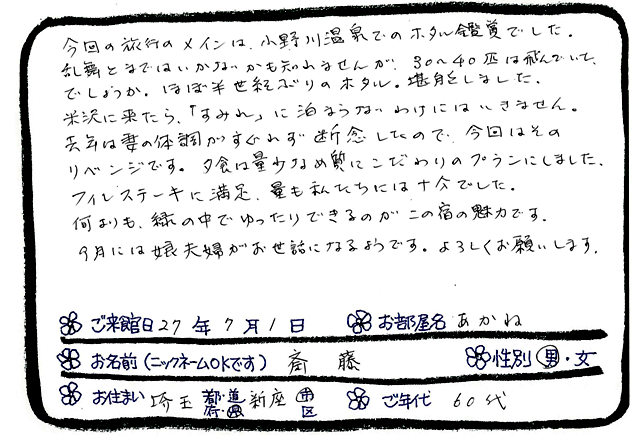 今回の旅行のメインは、小野川温泉でのホタル鑑賞でした。
乱舞とまではいかないかも知れませんが、30〜40匹は飛んでいた
でしょうか。ほぼ半世紀ぶりのホタル。堪能しました。
米沢に来たら、「すみれ」に泊まらないわけにはいきません。
去年は妻の体調がすぐれず断念したので、今回はその
リベンジです。夕食は量少なめ質にこだわりのプランにしました。
フィレステーキに満足、量も私たちには十分でした。
何よりも、緑の中でゆったりできるのがこの宿の魅力です。
9月には娘夫婦がお世話になるようです。よろしくお願いします。
ご来館日 27年7月1日 お部屋名 あかね
お名前(ニックネームOKです) 斉藤 性別 男・女
お住まい 埼玉 都・道・府・県 新座 市区 ご年代 60代